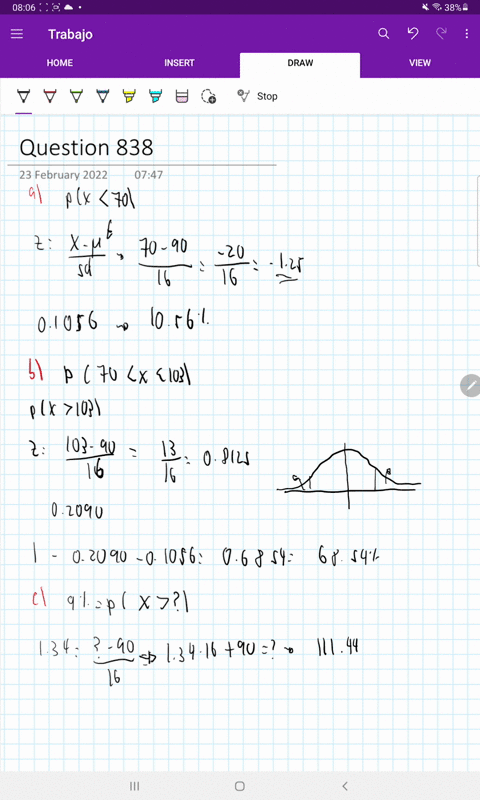 08:06 38%
Trabajo
HOME INSERT DRAW VIEW
Stop
Question 838
23 February 2022 07:47
a) p(x < 70)
z: x-μ/sd 70-90/16 = -20/16 = -1.25
0.1056 → 10.56%
b) p(70 < x < 103)
p(x > 103)
z: 103-90/16 = 13/16 = 0.8125
0.2090
1 - 0.2090 - 0.1056 = 0.6854 = 68.54%
c) 9% = p(x > ?)
1.34 = ?-90/16 => 1.34·16 + 90 = ? → 111.44